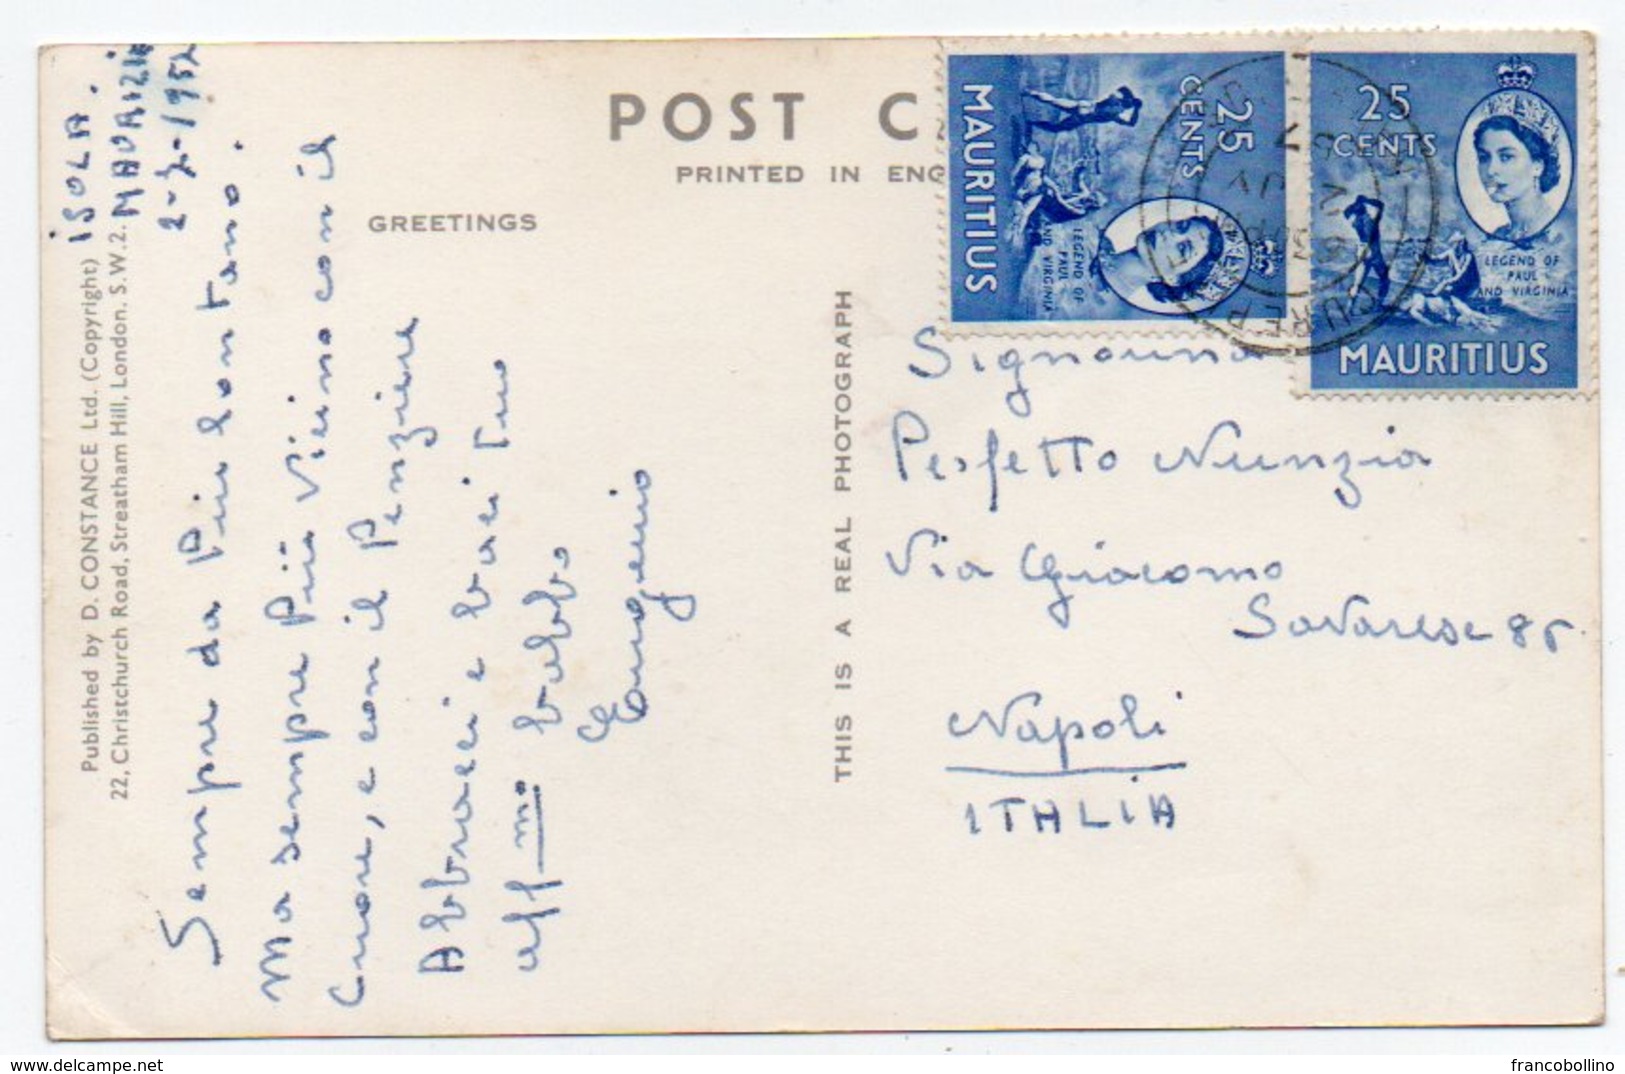 POST C
PRINTED IN ENG
GREETINGS
ISOLA.
MAURIZIE
Sempre da Più lontano.
Ma sempre Più Vicino con il
Cuore, e con il Penziere
Abbracci e baci Tuo
aff-mo babbo
Eugenio
Published by D. CONSTANCE Ltd. (Copyright)
22, Christchurch Road, Streatham Hill, London. S.W.2.
THIS IS A REAL PHOTOGRAPH
25
CENTS
LEGEND OF
PAUL
AND VIRGINIA
MAURITIUS
25
CENTS
LEGEND OF
PAUL
AND VIRGINIA
MAURITIUS
Signorina
Perfetto Nunzia
Via Giacomo
Savarese 85
Napoli
ITALIA
francobollino